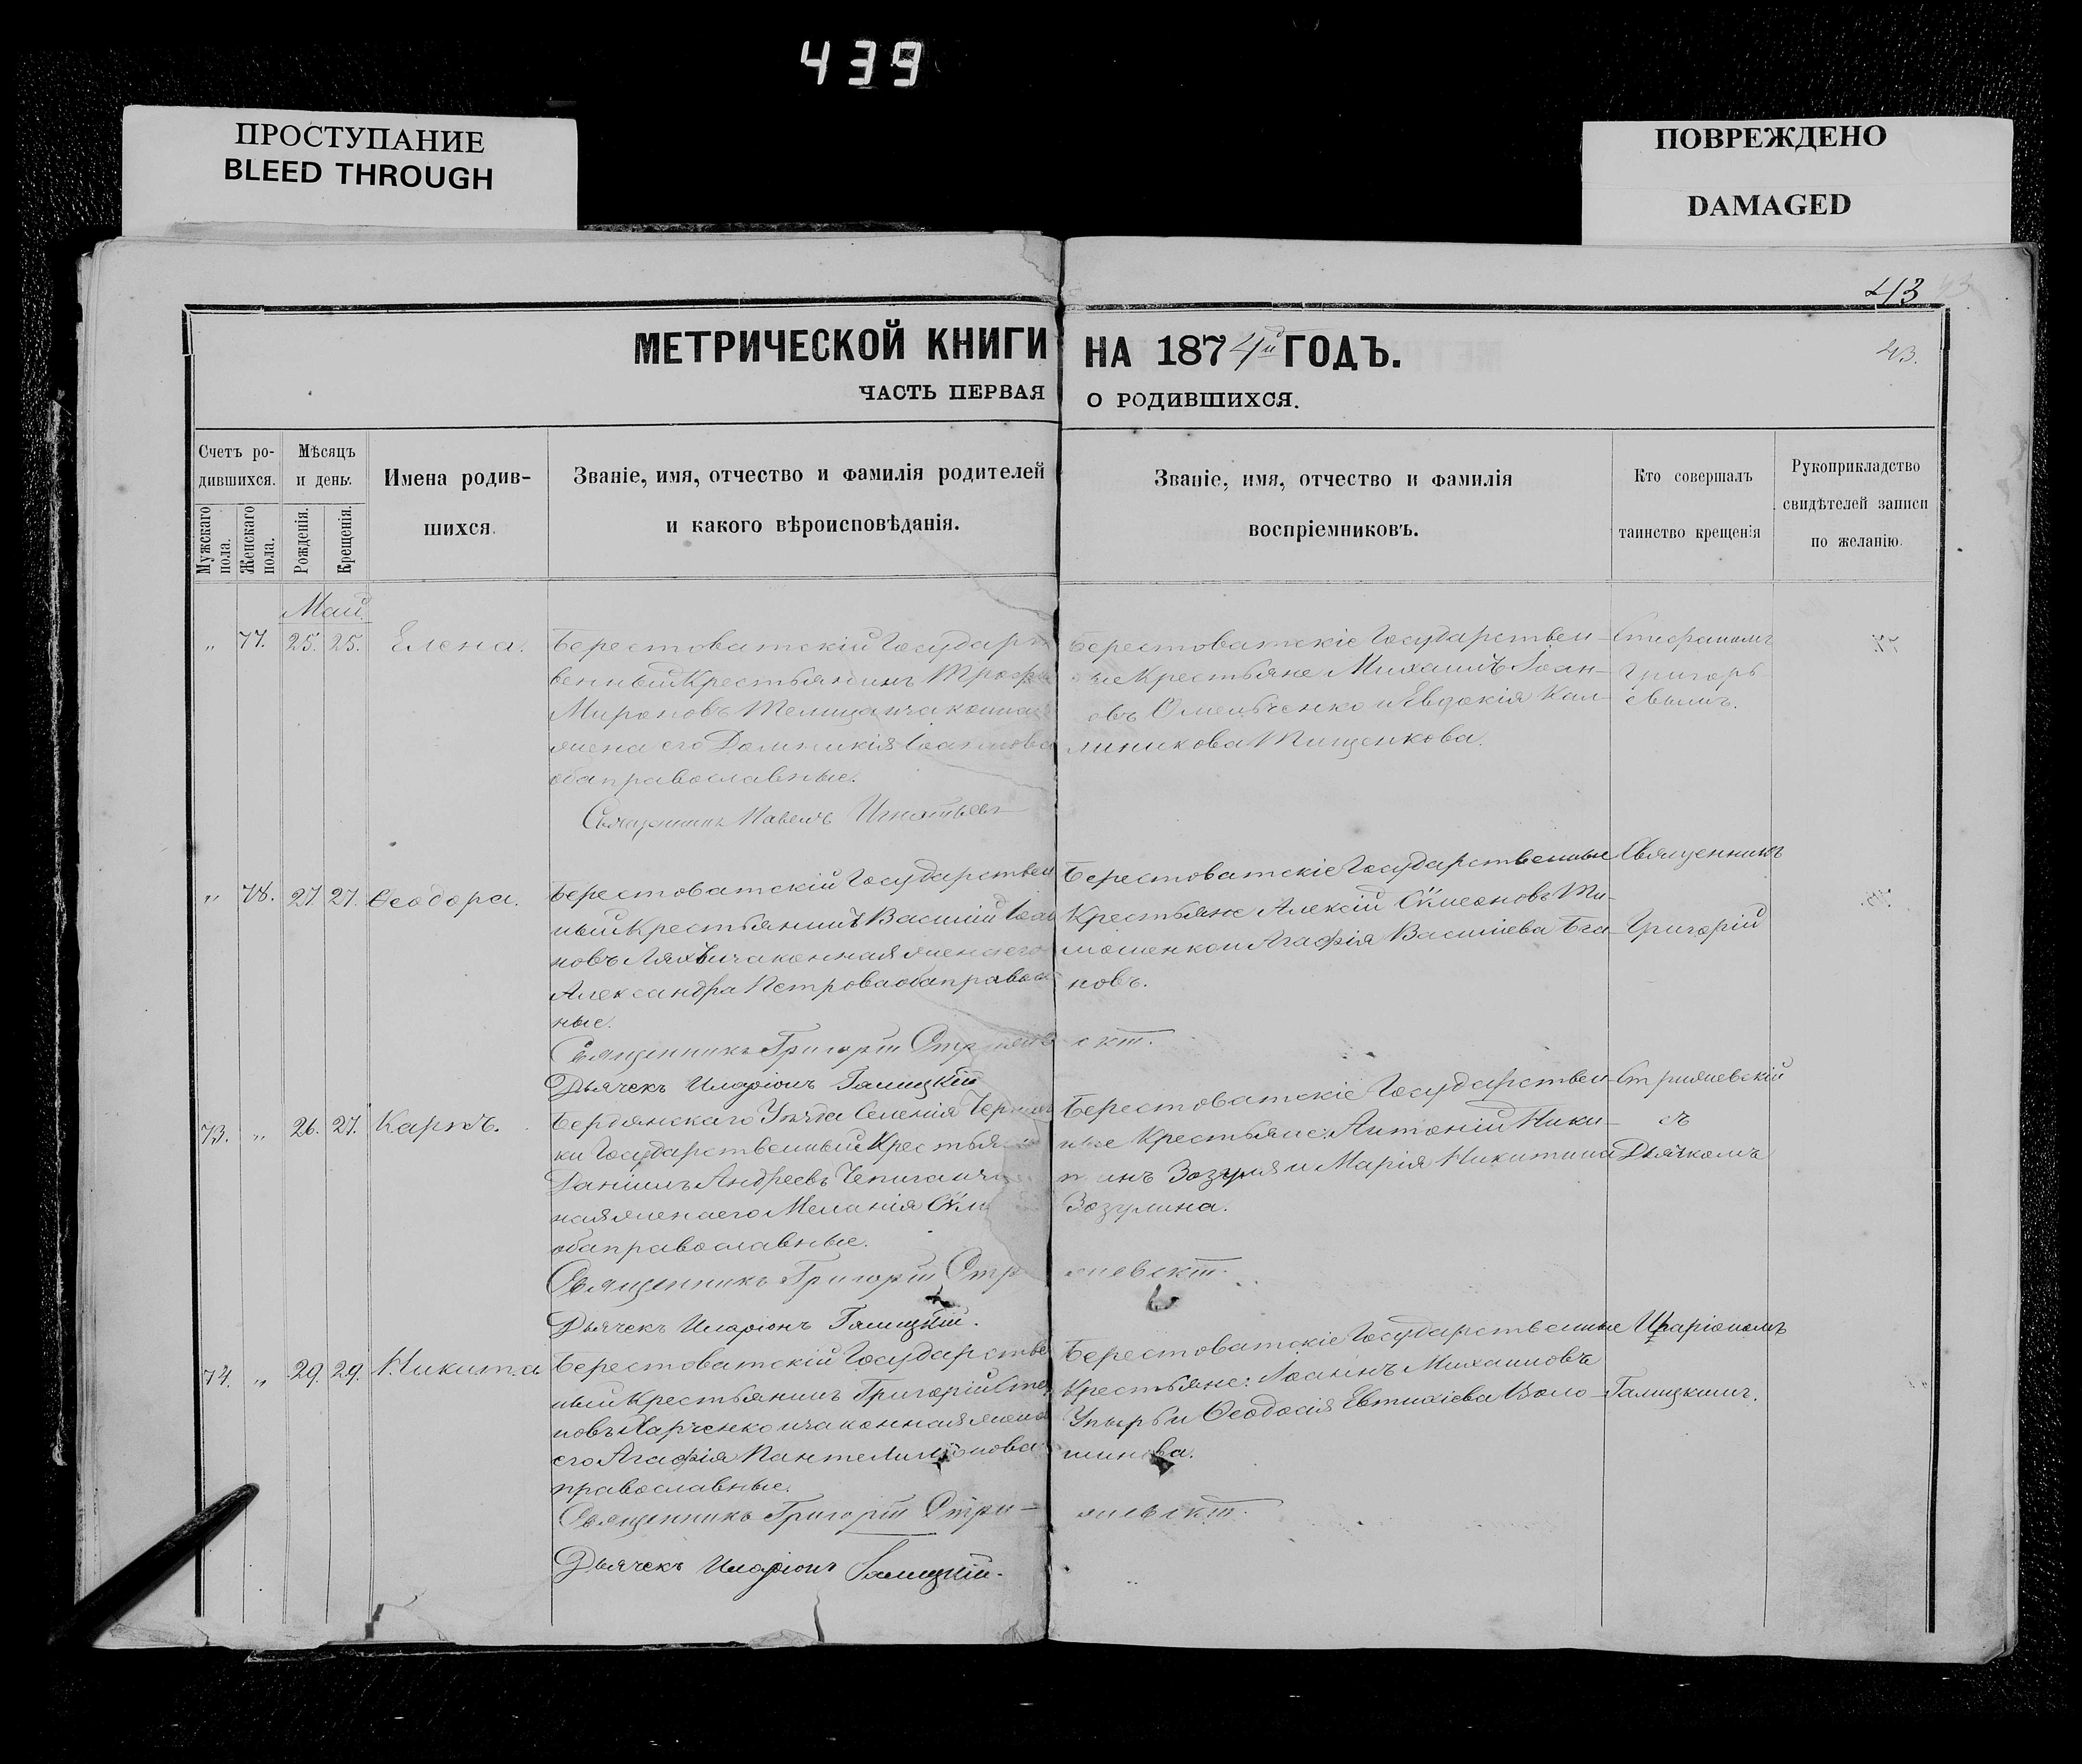 439
ПРОСТУПАНИЕ
BLEED THROUGH
ПОВРЕЖДЕНО
DAMAGED
43
43.
МЕТРИЧЕСКОЙ КНИГИ НА 1874й ГОДЪ.
ЧАСТЬ ПЕРВАЯ О РОДИВШИХСЯ.
Счетъ ро-
дившихся.
Мужскаго пола.
Женскаго пола.
Мѣсяцъ
и день.
Рожденія.
Крещенія.
Имена родив-
шихся.
Званіе, имя, отчество и фамилія родителей
и какого вѣроисповѣданія.
Званіе, имя, отчество и фамилія
воспріемниковъ.
Кто совершалъ
таинство крещенія
Рукоприкладство
свидѣтелей записи
по желанію.
Май
„ 77. 25. 25. Елена.
Берестоватскій Государст
венный Крестьянинъ
Мироновъ
жена его Домникія Іоаннова
оба православные.
Священникъ Павелъ Игнатьевъ
Берестоватскіе Государствен-
ые Крестьяне Михаилъ Іоан-
овъ Омельченко и Евдокія Кал-
линикова Тищенкова.
Стефаномъ
Григорь-
евымъ.
„ 78. 27. 27. Ѳеодора.
Берестоватскій Государствен
ный Крестьянинъ Василій Іоан
новъ Ляхъ и законная жена его
Александра Петрова оба правосл
ные.
Священникъ Григорій
Дьячекъ Иларіонъ Галицкій
Берестоватскіе Государственные
Крестьяне Алексій Сѵмеоновъ Ти-
мошенко и Агафія Василіева
новъ.
Священникъ
Григорій
73. „ 26. 27. Карпъ.
Бердянскаго Уѣзда Селенія
ки Государственный Крестьян
Даніилъ Андреевъ Чепига и за
ная жена его Меланія Сѵм
оба православные.
Священникъ Григорій Стр
Дьячекъ Иларіонъ Галицкій.
Берестоватскіе Государствен-
ные Крестьяне: Антоній Ники-
т инъ Зозуля и Марія Никитина
Зозулина.
Стрижевскій
съ
Дьячкомъ
74. „ 29. 29. Никита
Берестоватскій Государстве
ный Крестьянинъ Григорій Сте
новъ Харченко и законная жена
его Агафія Пантелиимонова
православные.
Священникъ Григорій Стри-
жевскій.
Дьячекъ Иларіонъ Галицкій.
Берестоватскіе Государственные
Крестьяне: Іоаннъ Михаиловъ
Упырь и Ѳеодосія Евтихіева Воло-
шинова.
Иларіономъ
Галицкимъ.